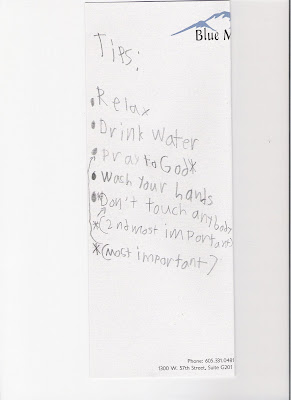 Blue M
Tips:
• Relax
• Drink Water
• Pray to God*
• Wach Your hands
• Don't touch anybody
*(2nd most important)
*(most important)
Phone: 605.381.0481
1300 W. 57th Street, Suite G201